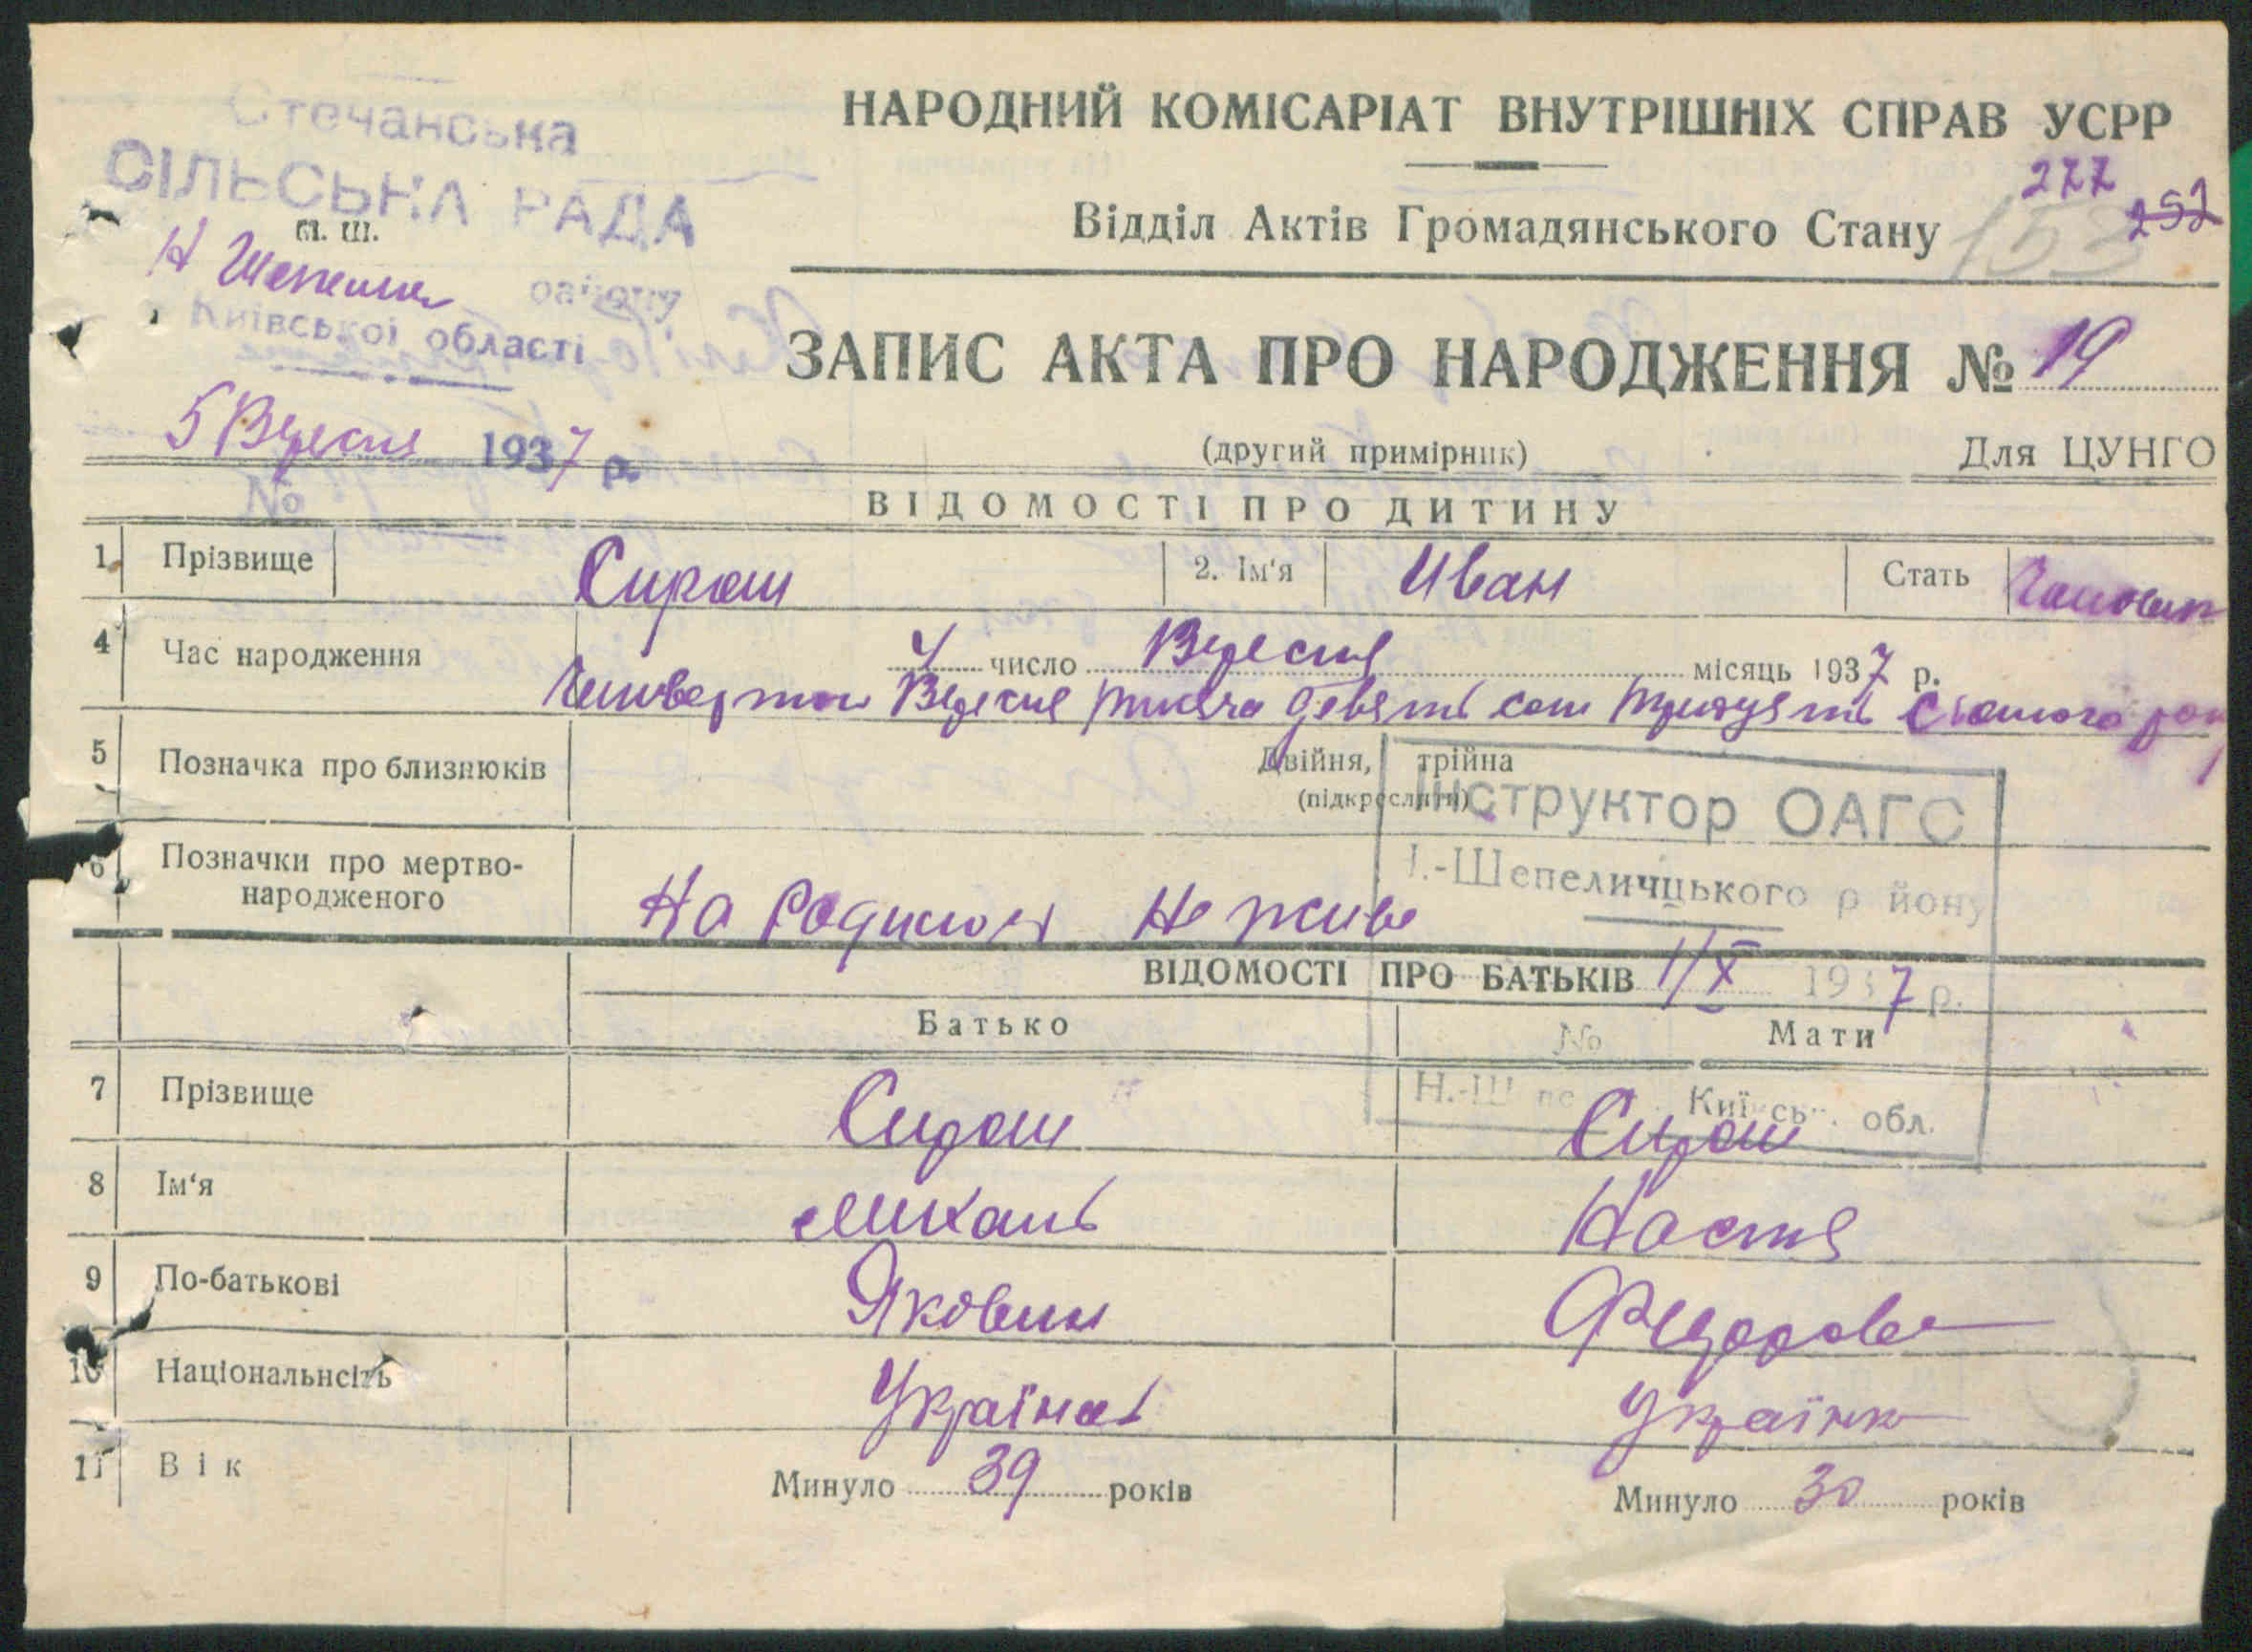 Стечанська
СІЛЬСЬКА РАДА
м. ш.
Н Шепели району
Київської області
5 Вересня 1937 р.
№
НАРОДНИЙ КОМІСАРІАТ ВНУТРІШНІХ СПРАВ УСРР
277
252
153
Відділ Актів Громадянського Стану
ЗАПИС АКТА ПРО НАРОДЖЕННЯ № 19
(другий примірник)
Для ЦУНГО
ВІДОМОСТІ ПРО ДИТИНУ
1. Прізвище Сираш 2. Ім'я Иван Стать
4 Час народження 4 число Вересня місяць 1937 р.
Вересня тисяча девять сот тридцять сьомого року
5 Позначка про близнюків Двійня, трійна
(підкреслити)
Інструктор ОАГС
6 Позначки про мертво-
народженого
Н.-Шепеличцького району
На живе
ВІДОМОСТІ ПРО БАТЬКІВ
1/X 1937 р.
Батько Мати
№
7 Прізвище Сираш Сираш
Н.-Ш Київськ. обл.
8 Ім'я Настя
9 По-батькові Якович Федоровна
10 Національнсіть Україн Українк
11 Вік Минуло 39 років Минуло 30 років